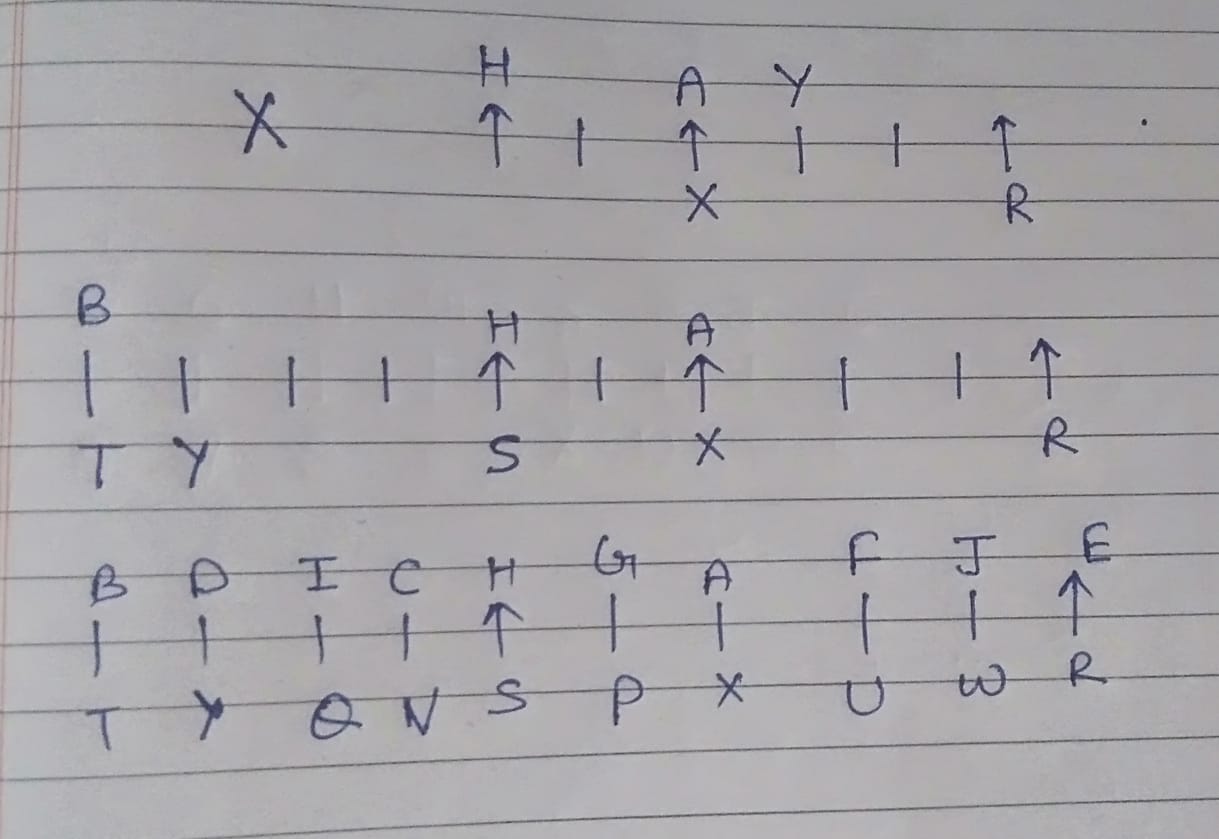 H A Y
X ↑ | ↑ | | ↑
X R
B H A
| | | | ↑ | ↑ | | ↑
T Y S X R
B D I C H G A F J E
| | | | ↑ | | | | ↑
T Y Q N S P X U W R